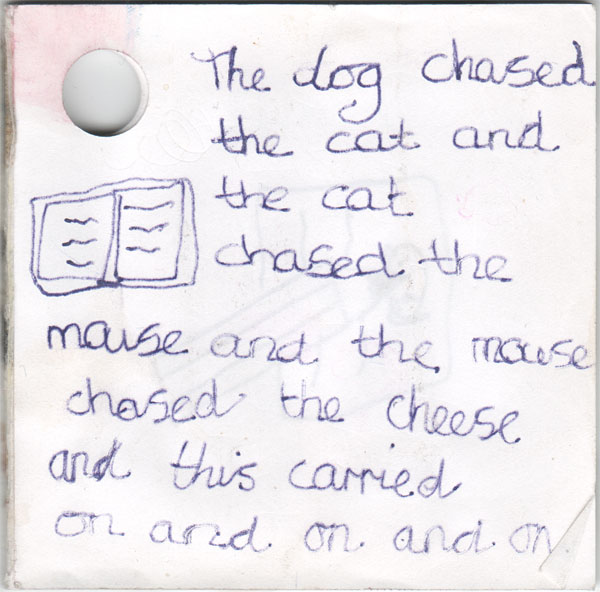 The dog chased
the cat and
the cat
chased the
mouse and the mouse
chased the cheese
and this carried
on and on and on